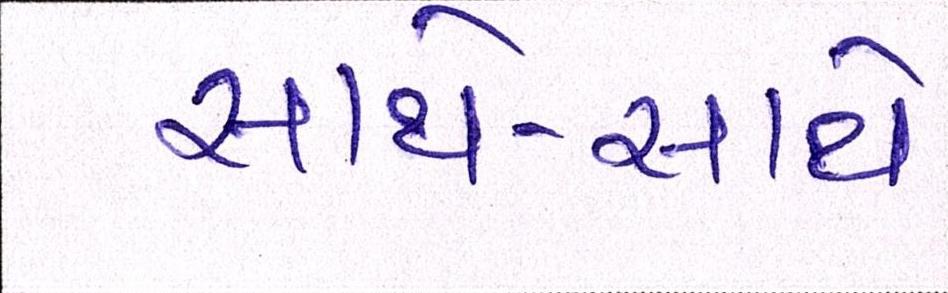 સાથે-સાથે